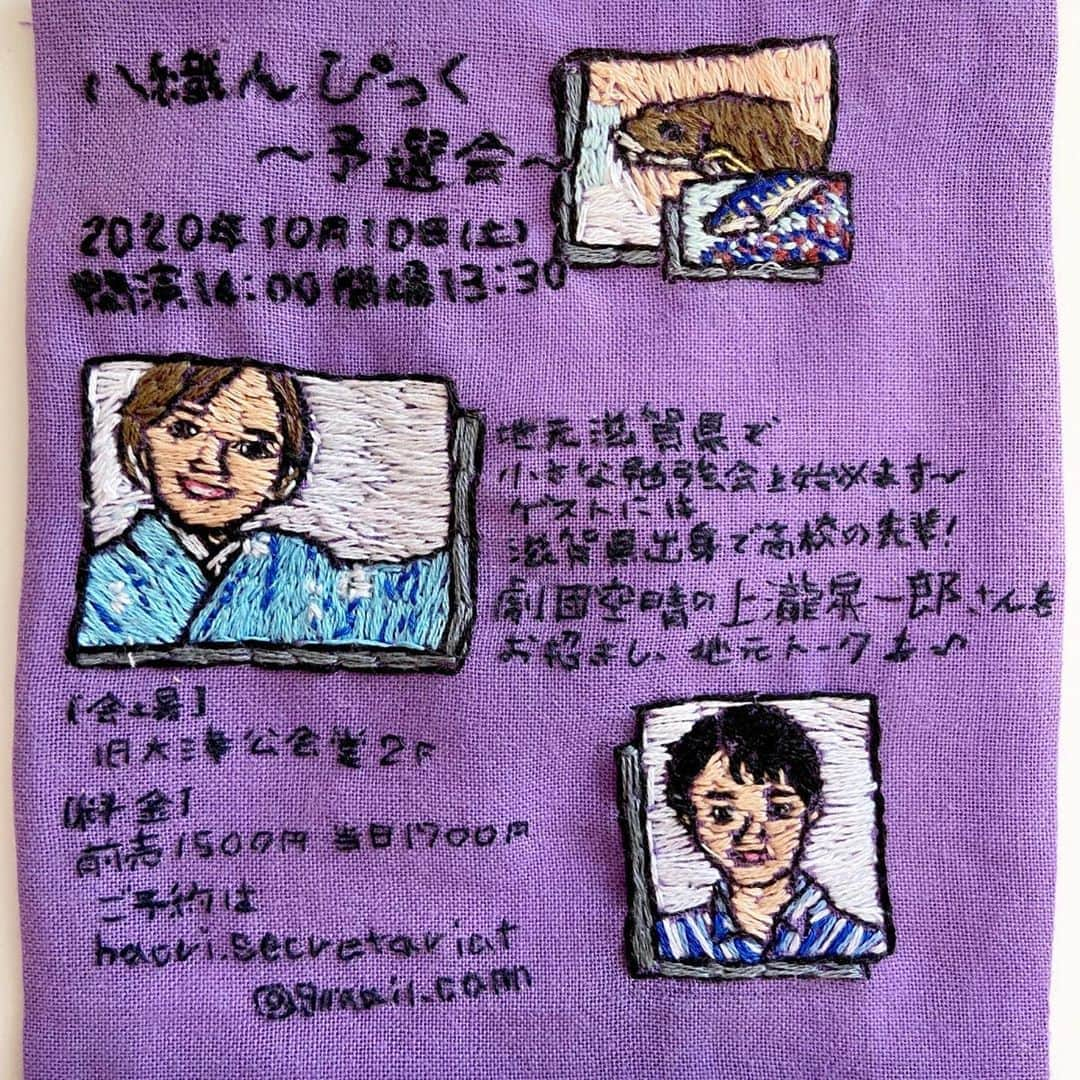 八織んぴっく
～予選会～
2020年10月10日(土)
開演14:00開場13:30
地元滋賀県で
小さな勉強会を始めます～
ゲストには
滋賀県出身で高校の先輩!
劇団空晴の上瀧昇一郎さんを
お招きし、地元トークも♪
【会場】
旧大津公会堂2F
【料金】
前売1500円 当日1700円
ご予約は
haori.secretariat
@gmail.com